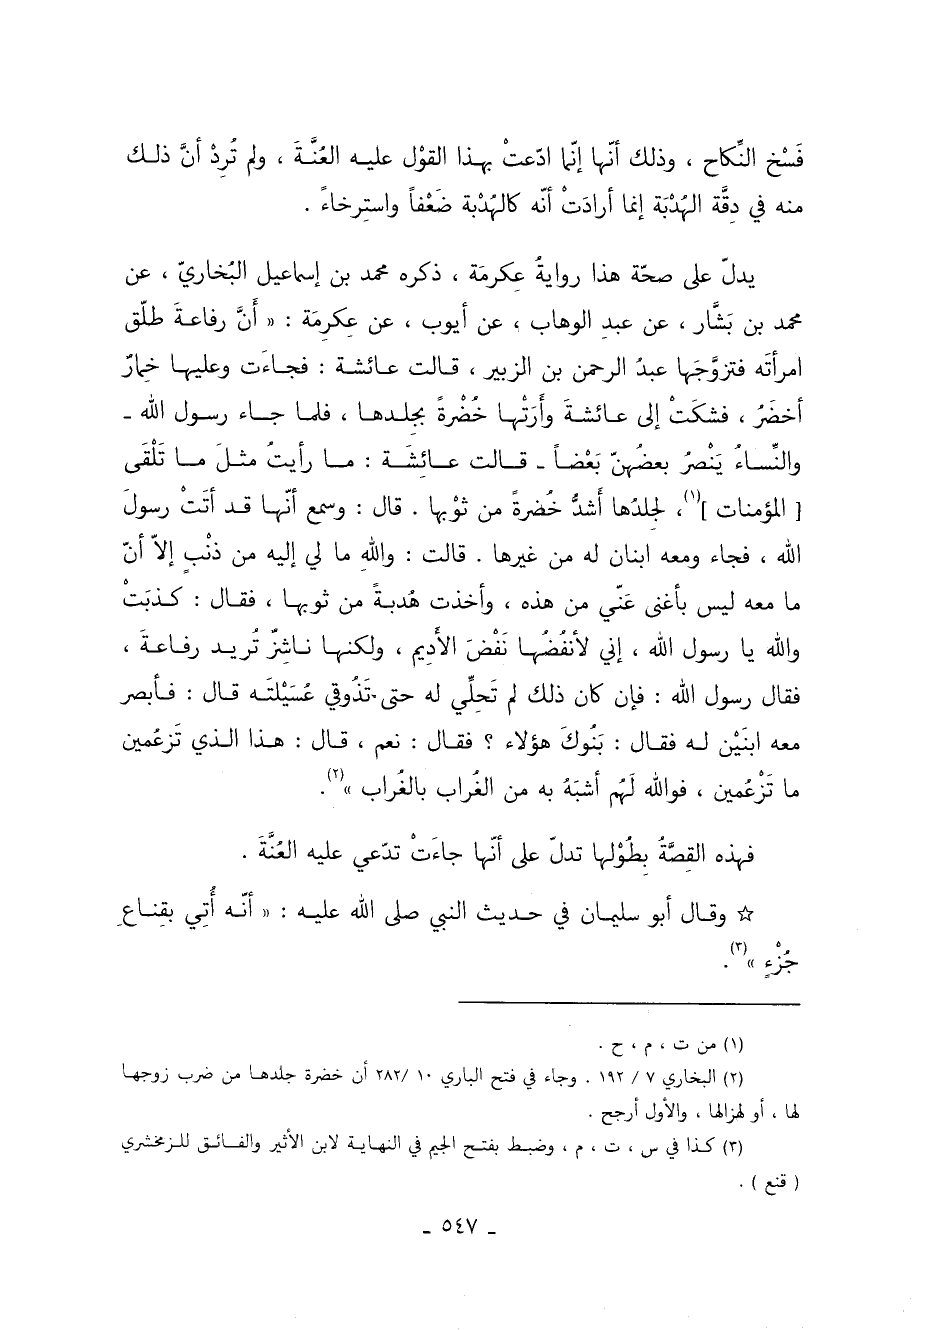 فَسْخ النِّكاح ، وذلك أنّها إنّما ادّعتْ بهذا القوْل عليه العُنَّةَ ، ولم تُرِدْ أنَّ ذلك
منه في دِقَّة الهُدْبَة إنما أرادَتْ أنّه كالهُدْبة ضَعْفاً واسترخاءً .
يدلّ على صحّة هذا روايةُ عِكرمَة ، ذكره محمد بن إسماعيل البُخاريّ ، عن
محمد بن بَشَّار ، عن عبدِ الوهاب ، عن أيوب ، عن عِكرِمَة : « أَنَّ رفاعةَ طلّق
امرأتَه فتزوَّجَها عبدُ الرحمن بن الزبير ، قالت عائشة : فجاءَت وعليها خِمارٌ
أخضَرُ ، فشكَتْ إلى عائشةَ وأرَتْها خُضْرةً بجلدها ، فلما جاء رسول الله -
والنِّساءُ يَنْصرُ بعضُهنّ بَعْضاً - قالت عائشَة : ما رأيتُ مثلَ ما تَلْقَى
[ المؤمنات ](١)، لجلدُها أَشدُّ خُضرةً من ثوْبها . قال : وسمع أنّها قد أتَتْ رسولَ
الله ، فجاء ومعه ابنان له من غيرها . قالت : واللهِ ما لي إليه من ذنْبٍ إلاّ أنّ
ما معه ليس بأغنى عَنّي من هذه ، وأخذت هُدبةً من ثوبها ، فقال : كذبَتْ
والله يا رسول الله ، إني لأنفُضُها نَفْضَ الأديم ، ولكنها ناشِزٌ تُريد رفاعةَ ،
فقال رسول الله : فإن كان ذلك لم تَحلِّي له حتى تَذُوقي عُسَيْلتَه قال : فأبصر
معه ابنَيْن له فقال : بَنُوكَ هؤلاء ؟ فقال : نعم ، قال : هذا الذي تَزعُمين
ما تَزْعُمين ، فوالله لَهُم أشبَهُ به من الغُراب بالغُراب »(٢).
فهذه القصَّةُ بطُوْلها تدلّ على أنّها جاءَتْ تدّعي عليه العُنَّةَ .
☆ وقال أبو سليمان في حديث النبي صلى الله عليه : « أنّه أُتي بقِناعِ
جُزْءٍ »(٣).
(١) من ت ، م ، ح .
(٢) البخاري ٧ / ١٩٢ . وجاء في فتح الباري ١٠ /٢٨٢ أن خضرة جلدها من ضرب زوجها
لها ، أو لهزالها ، والأول أرجح .
(٣) كذا في س ، ت ، م ، وضبط بفتح الجيم في النهاية لابن الأثير والفائق للزمخشري
( قنع ) .
- ٥٤٧ -